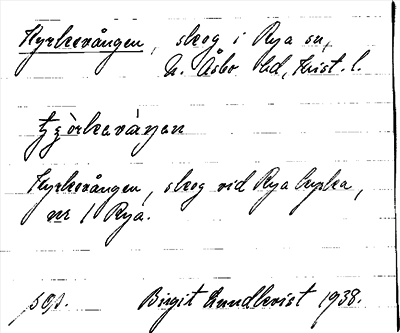 Kyrkevången, skog i Rya sn,
N. Åsbo hd, Krist. l.
Kyrkevången, skog vid Rya kyrka,
nr 1 Rya.
Birgit Lundkvist 1938.